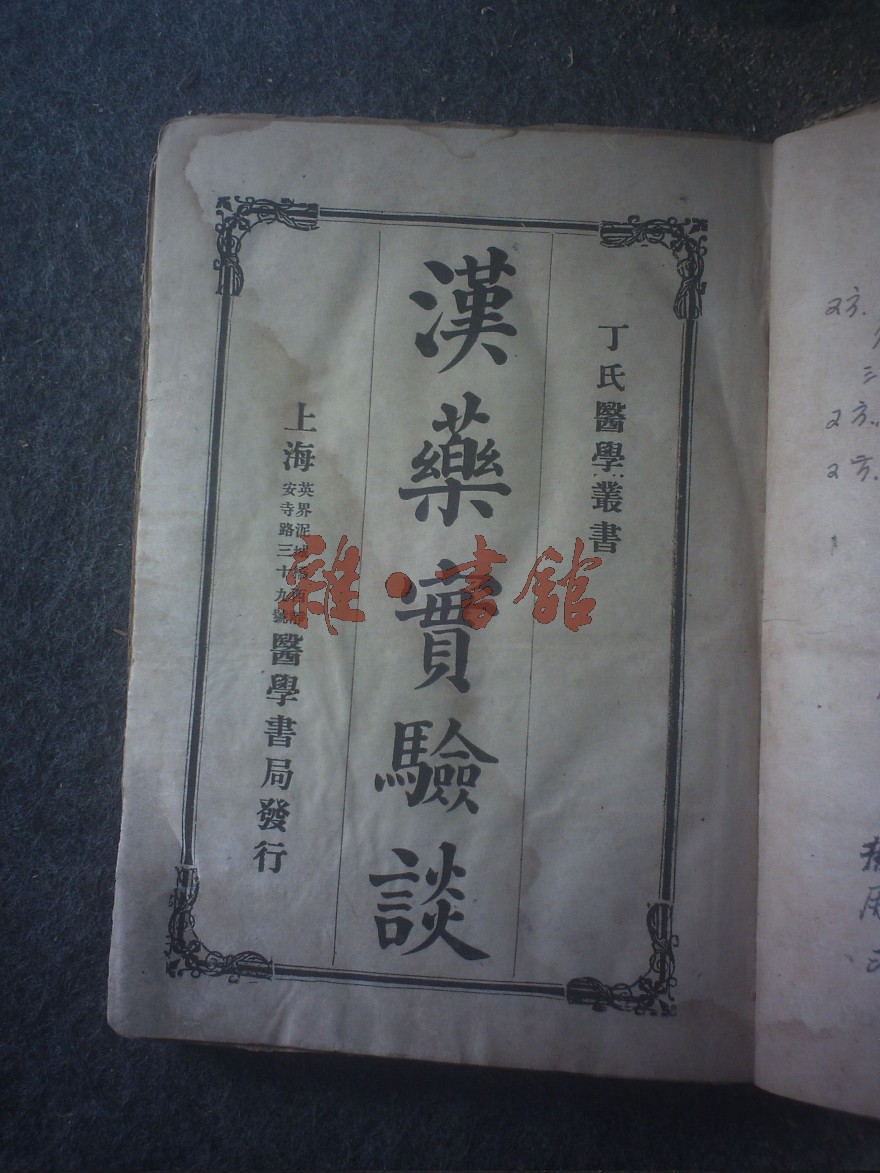 丁氏醫學叢書
漢藥實驗談
上海
英界泥城橋西靜
安寺路三十九號
醫學書局發行
雜·書館
2方.
三
2方..
2方.